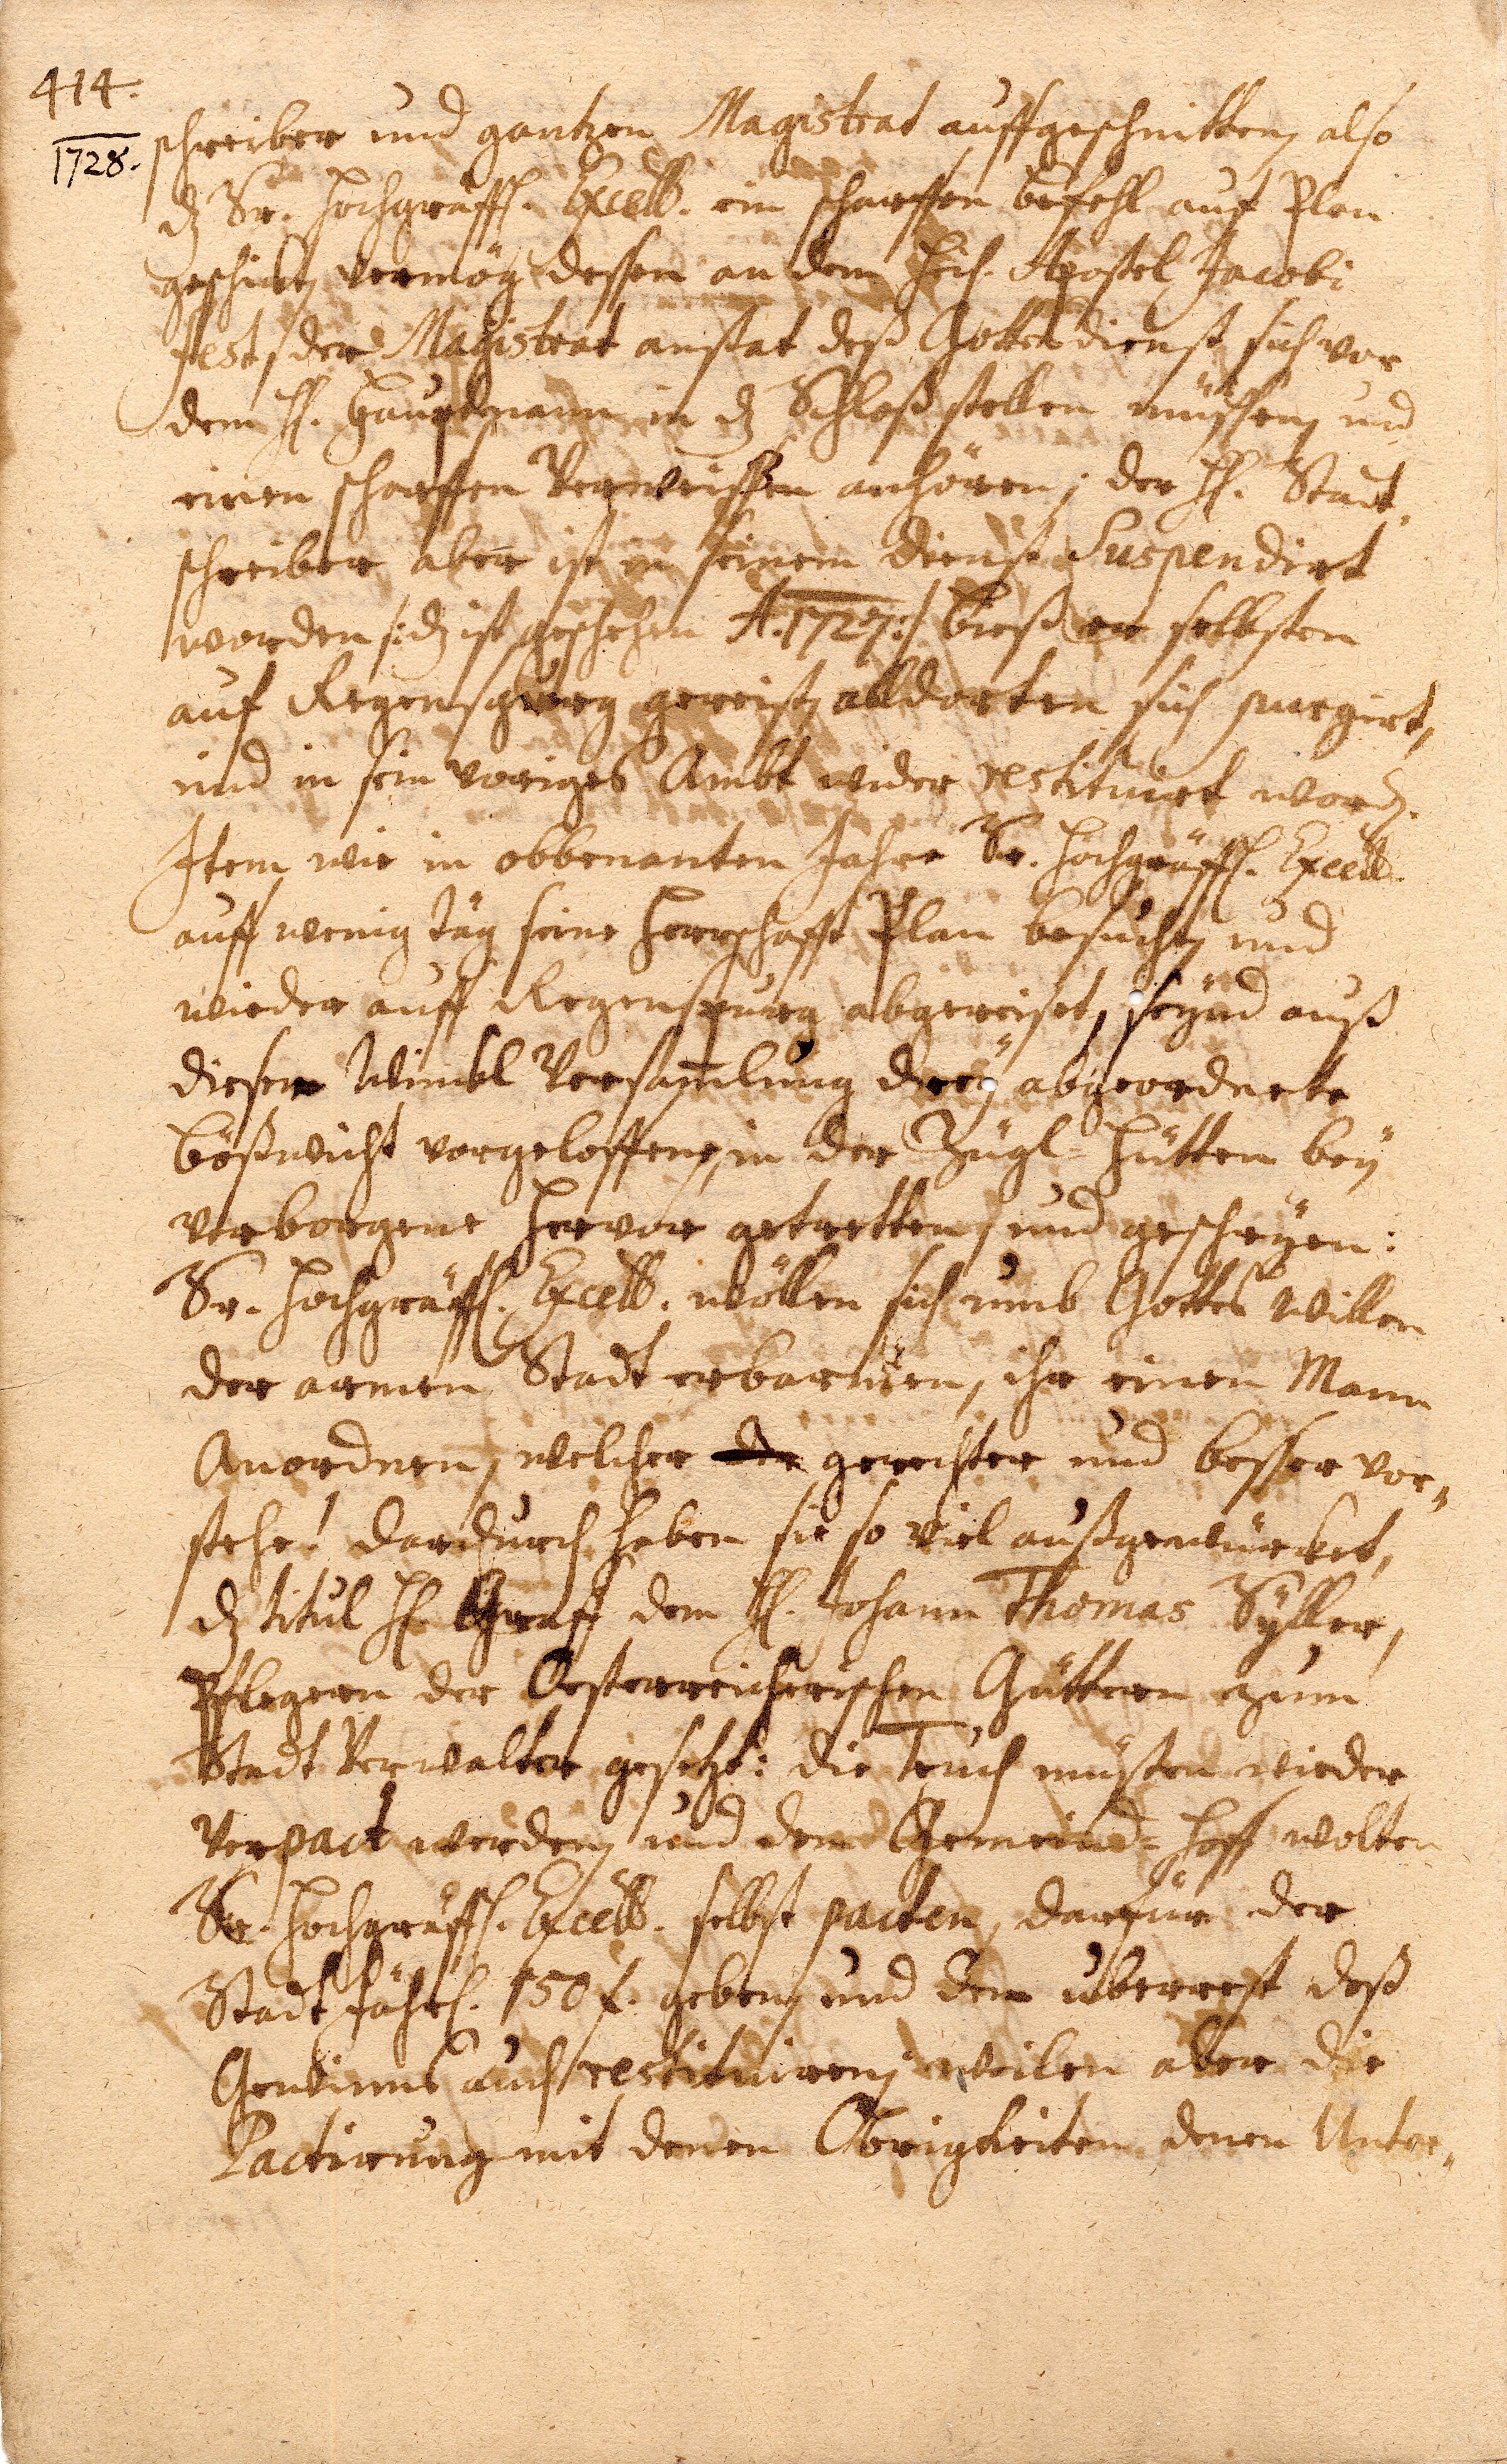 414.
1728.
schreiber und gantzen Magistrat auffgeschnitten, also
dz Sr. Hochgräffl. Excell. ein scharffen befehl auf Plan
geschickt, vermög dessen an dem Heil. Apostel Jacobi
fest, der Magistrat anstat deß Gottesdienst sich vor
dem H. Hauptmann in dz Schloß stellen müssen, und
einen scharffen Verweissen anhören; der H. Stadt
schreiber aber ist in seinem dienst Suspendirt
worden /: dz ist geschehen A. 1727 :/ bieß er selbsten
auf Regenspurg gereist, alldorten sich purgirt,
und in sein voriges Ambt wider restituirt word.
Item wie in obbenanten Jahre Sr. Hochgräffl. Excell.
auff wenig täg seine Herrschafft Plan besucht, und
wieder auff Regenspurg abgereiset, seynd auß
dieser Winkl Versamlung dreÿ abgeordnete
bößwicht vorgeloffen, in der Zügl-Hütten beÿ
verborgene hervor getretten, und geschryen:
Sr. Hochgräffl. Excell. wöllen sich umb Gottes Willen
der armen Stadt erbarmen, ihr einen Mann
Anordnen, welcher gerechter und besser vor-
stehe! dardurch haben sie so viel außgewürcket,
dz titul H. Graff dem H. Johann Thomas Syller,
Pflegern der Oesterreicherischen Güttern zum
Stadt Verwalter gesetzt: die Teuch müsten wieder
Verpact werden, und den Gemeind-Hoff wolten
Sr. Hochgräffl. Excell. selbst pacten, darfür der
Stadt Jährl. 150 f. geben, und den überrest deß
Gewinns auch restituiren; weilen aber die
Pactirung mit denen Obrigkeiten denen Unter-